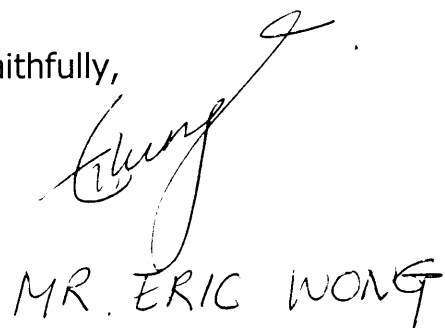 aithfully,
MR. ERIC WONG